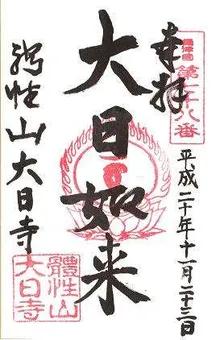 奉拝
平成二十年十一月二十三日
大日如来
性山大日寺
體性山
大日寺